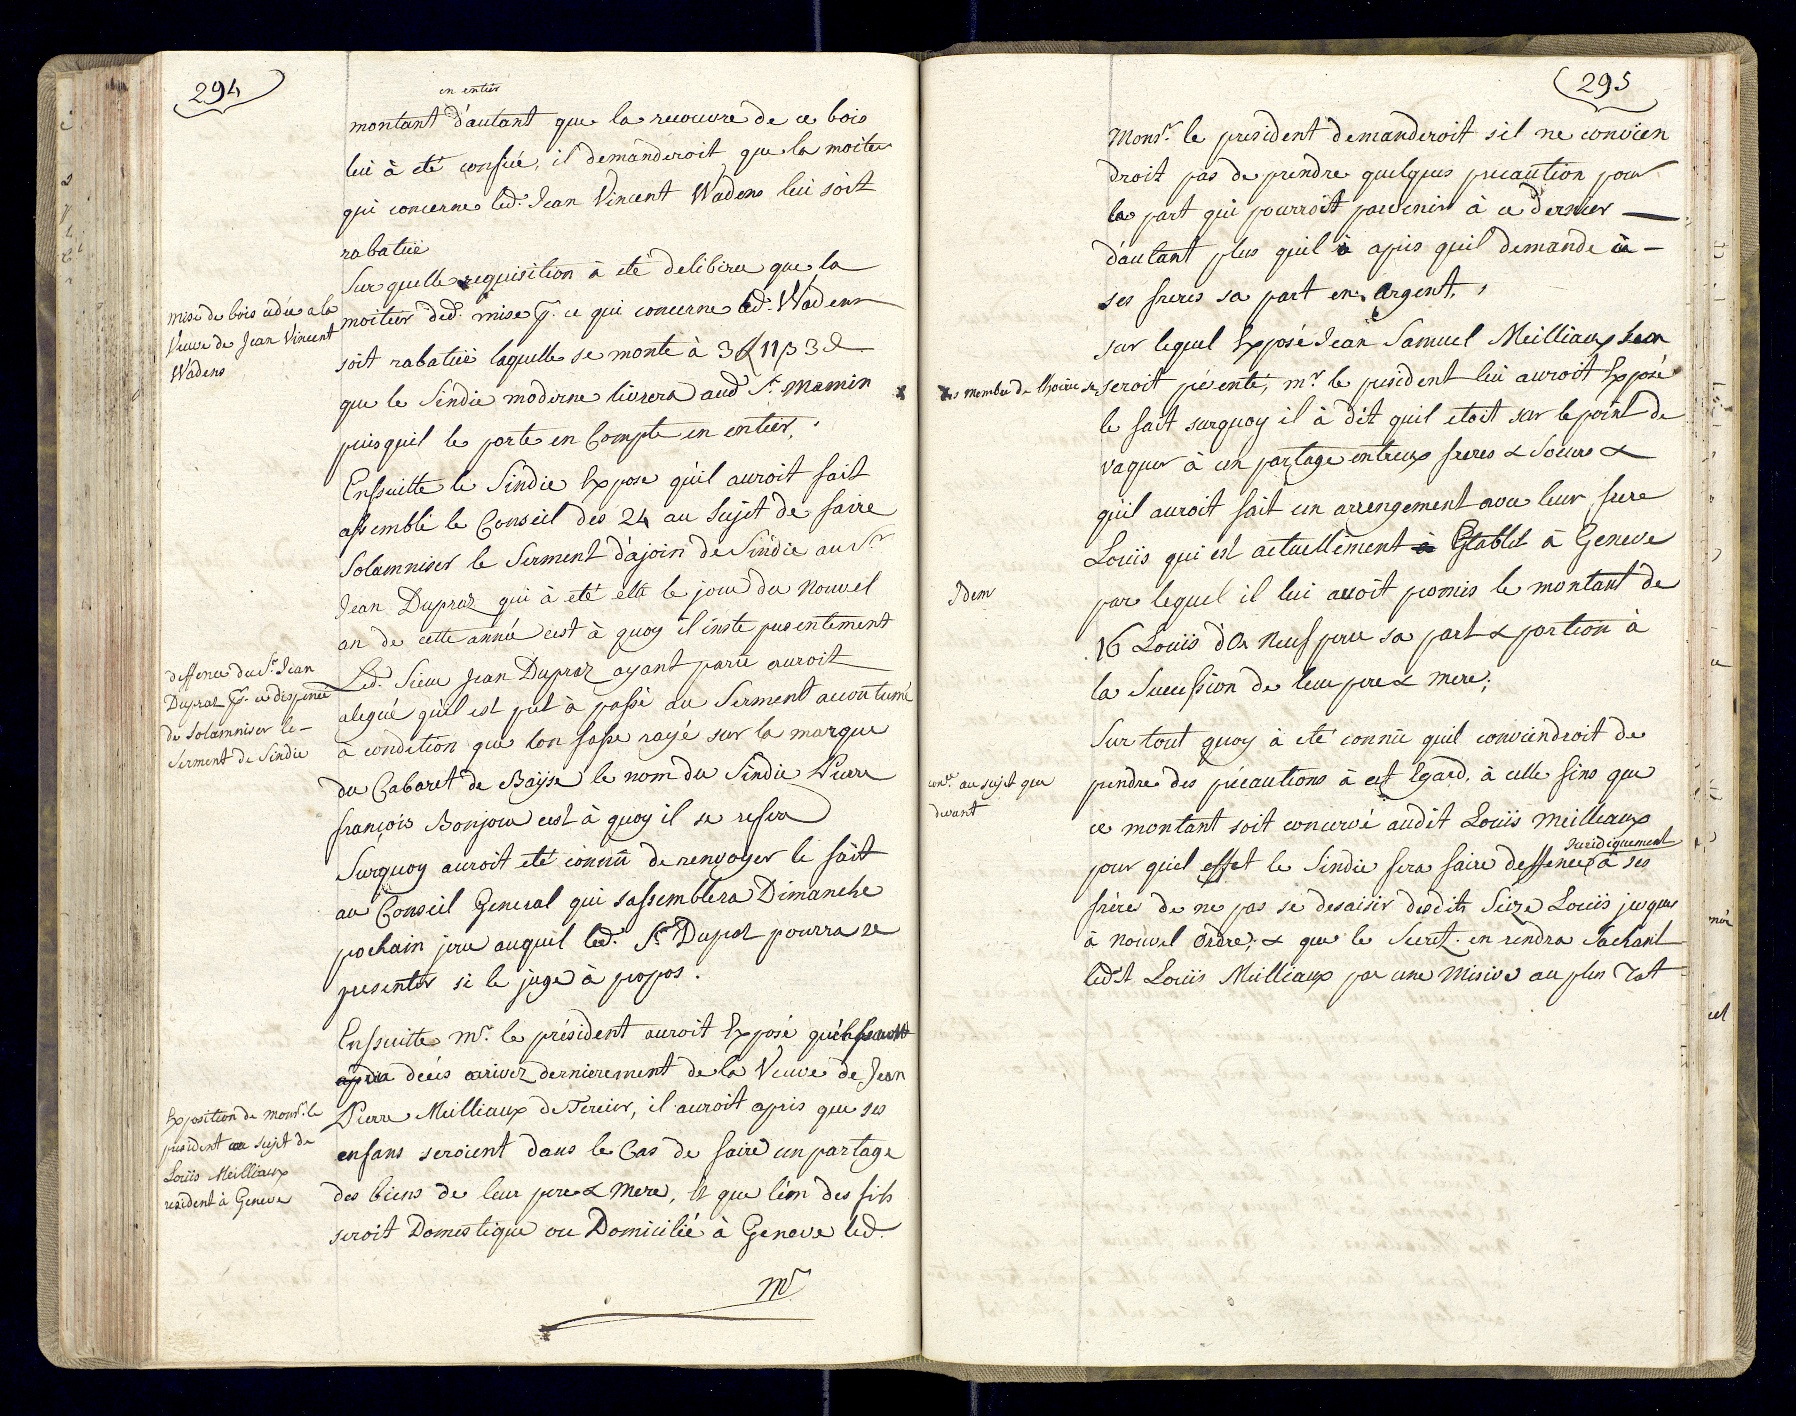 294
en entier
montant d'autant que la recouvre de ce bois
lui à eté confié, il demanderoit que la moitee
qui concerne led. Jean Vincent Wadens lui soit
rabatüe
Sur quelle requisition à eté deliberé que la
mise de bois cedée a la
Veuve de Jean Vincent
Wadens
moitier ded. mise p. ce qui concerne led. Wadens
soit rabatüe laquelle se monte à 3 11 3
que le Sindic moderne livrera aud. Sr. Mamin
puisquil le porte en Compte en entier.
Ensuitte le Sindic Expose qu'il auroit fait
assemblé le Conseil des 24 au Sujet de faire
Solamniser le Serment d'ajoin de Sindic au Sr.
Jean Dupraz qui à eté élû le jour du Nouvel
an de cette année c'est à quoy il inste presentement
deffence du Sr. Jean
Dupraz p. ce dispencé
de Solamniser le
Serment de Sindic
Led. Sieur Jean Dupraz ayant parû auroit
alegué qu'il est pret à passé au Serment accoutumé
à condition que l'on fasse rayé sur la marque
du Cabaret de Bayse le nom du Sindic Pierre
françois Bonjour cest à quoy il se refera
Surquoy auroit eté connû de renvoyer le fait
au Conseil General qui s'assemblera Dimanche
prochain jour auquil led. Sr. Dupraz pourra se
presenter si le juge à propos.
Ensuitte Mr. le président auroit Exposé
décès arrivez dernierement de la Veuve de Jean
Exposition de Monsr. le
president au sujet de
Louis Meilliaux
resident à Geneve
Pierre Meilliaux de Fereier, il auroit apris que ses
enfans seroient dans le Cas de faire un partage
des biens de leur pere & Mere, et que l'un des fils
seroit Domestique ou Domicilié à Geneve led.
Mr.
295
Monsr. le president demanderoit s'il ne convien
droit pas de prendre quelques precaution pour
la part qui pourroit parvenir à ce dernier —
d'autant plus quil à apris quil demande à —
ses freres sa part en Argent,
sur lequel Exposé Jean Samuel Meilliaux
seroit présenté, Mr. le president lui auroit Exposé
le fait surquoy il à dit quil etoit sur le point de
vaquer à un partage entreux freres & Soeurs &
qu'il auroit fait un arrengement avec leur frere
Louis qui est actuellement Etablit à Geneve
Idem
par lequel il lui auroit promis le montant de
16 Louis d'Or Neuf pour sa part & portion à
la Succession de leur pere & Mere;
Sur tout quoy à eté connû quil conviendroit de
conce. au sujet que
devant
prendre des précautions à cet Egard, à celle fins que
ce montant soit concervé audit Louis Meilliaux
juridiquement
pour quel effet le Sindic fera faire deffence à ses
frère de ne pas se desaisir desdits Seize Louis jusques
à Nouvel Ordre, & que le Secret. en rendra Sachant
ledit Louis Meilliaux par une Misive au plus Tot